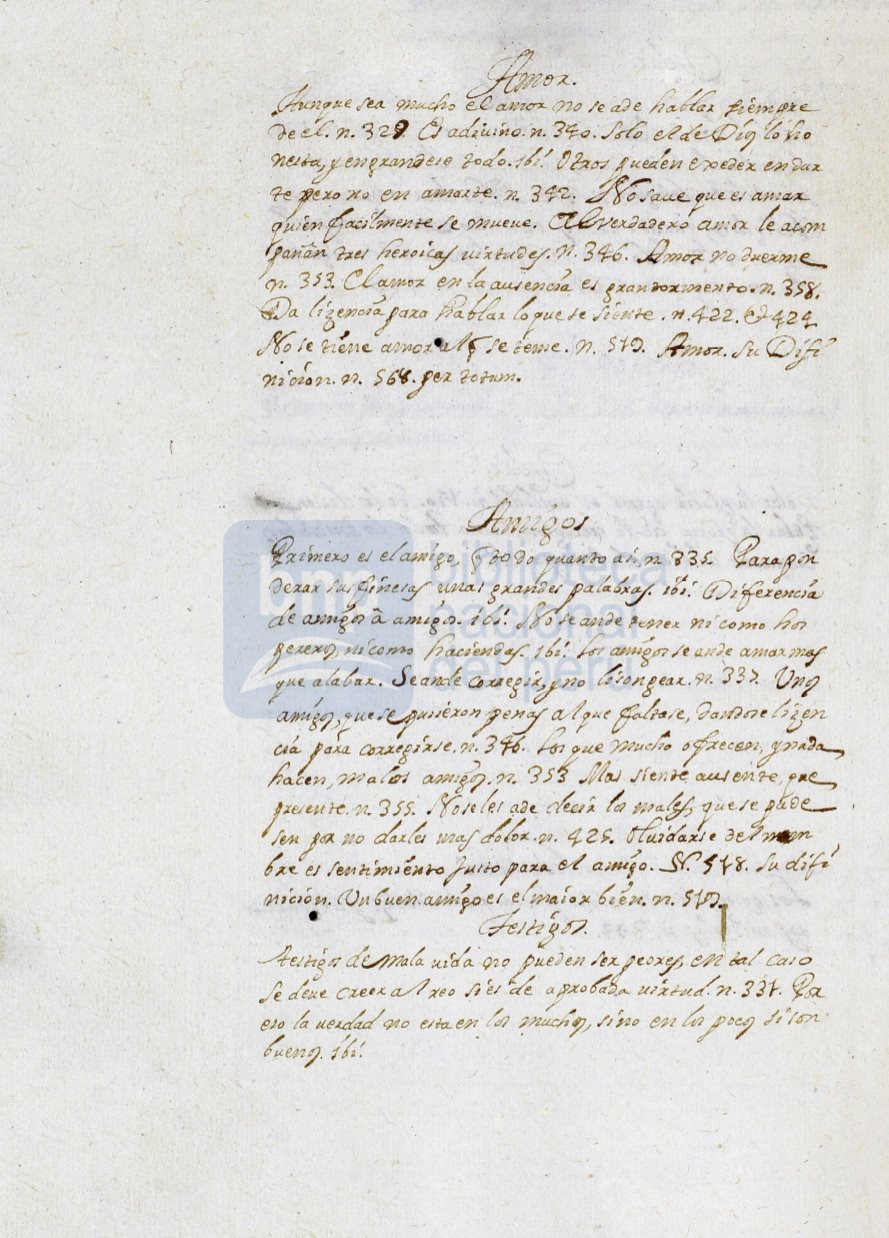 Amor.
Aunque sea mucho el amor no se ade hablar siempre
de el. n. 329. Es adivino. n. 340. Solo el de Dios lo ho
nesta, y engrandese todo. ibi. Otros pueden exceder en dar
te pero no en amarte. n. 342. No save que es amar
quien facilmente se mueve. Al verdadero amor le acom
pañan tres heroicas virtudes. n. 346. Amor no duerme
n. 353. El amor en la ausencia es gran tormento. n. 358.
Da lizencia para hablar lo que se siente. n. 422. & 424
No se tiene amor al q se teme. n. 519. Amor. Su Difi
nicion. n. 568. per totum.
Amigos
Primero es el amigo, q todo quanto ai. n. 335. Para pon
derar sus finesas unas grandes palabras. ibi. Diferencia
de amigos à amigos. ibi. No se ande tener ni como hos
pereros, ni como haciendas. ibi. Los amigos se ande amar mas
que alabar. Se ande corregir, y no lisongear. n. 337. Unos
amigos, que se pusieron penas al que faltase, dandose lizen
cia para corregirse. n. 346. Los que mucho ofrecen, y nada
hacen, malos amigos. n. 353 Mas siente ausente, que
presente. n. 355. No se les ade decir los males, que se pade
sen por no darles mas dolor. n. 425. Olvidarse del nom
bre es sentimiento justo para el amigo. N. 518. Su difi
nicion. Un buen amigo es el maior bien. n. 519.
Testigos.
Testigos de mala vida no pueden ser peores, en tal caso
se deve creer al reo si es de aprobada virtud. n. 331. Por
eso la verdad no esta en los muchos, sino en los pocos si son
buenos. ibi.
bnp biblioteca
nacional
del perú